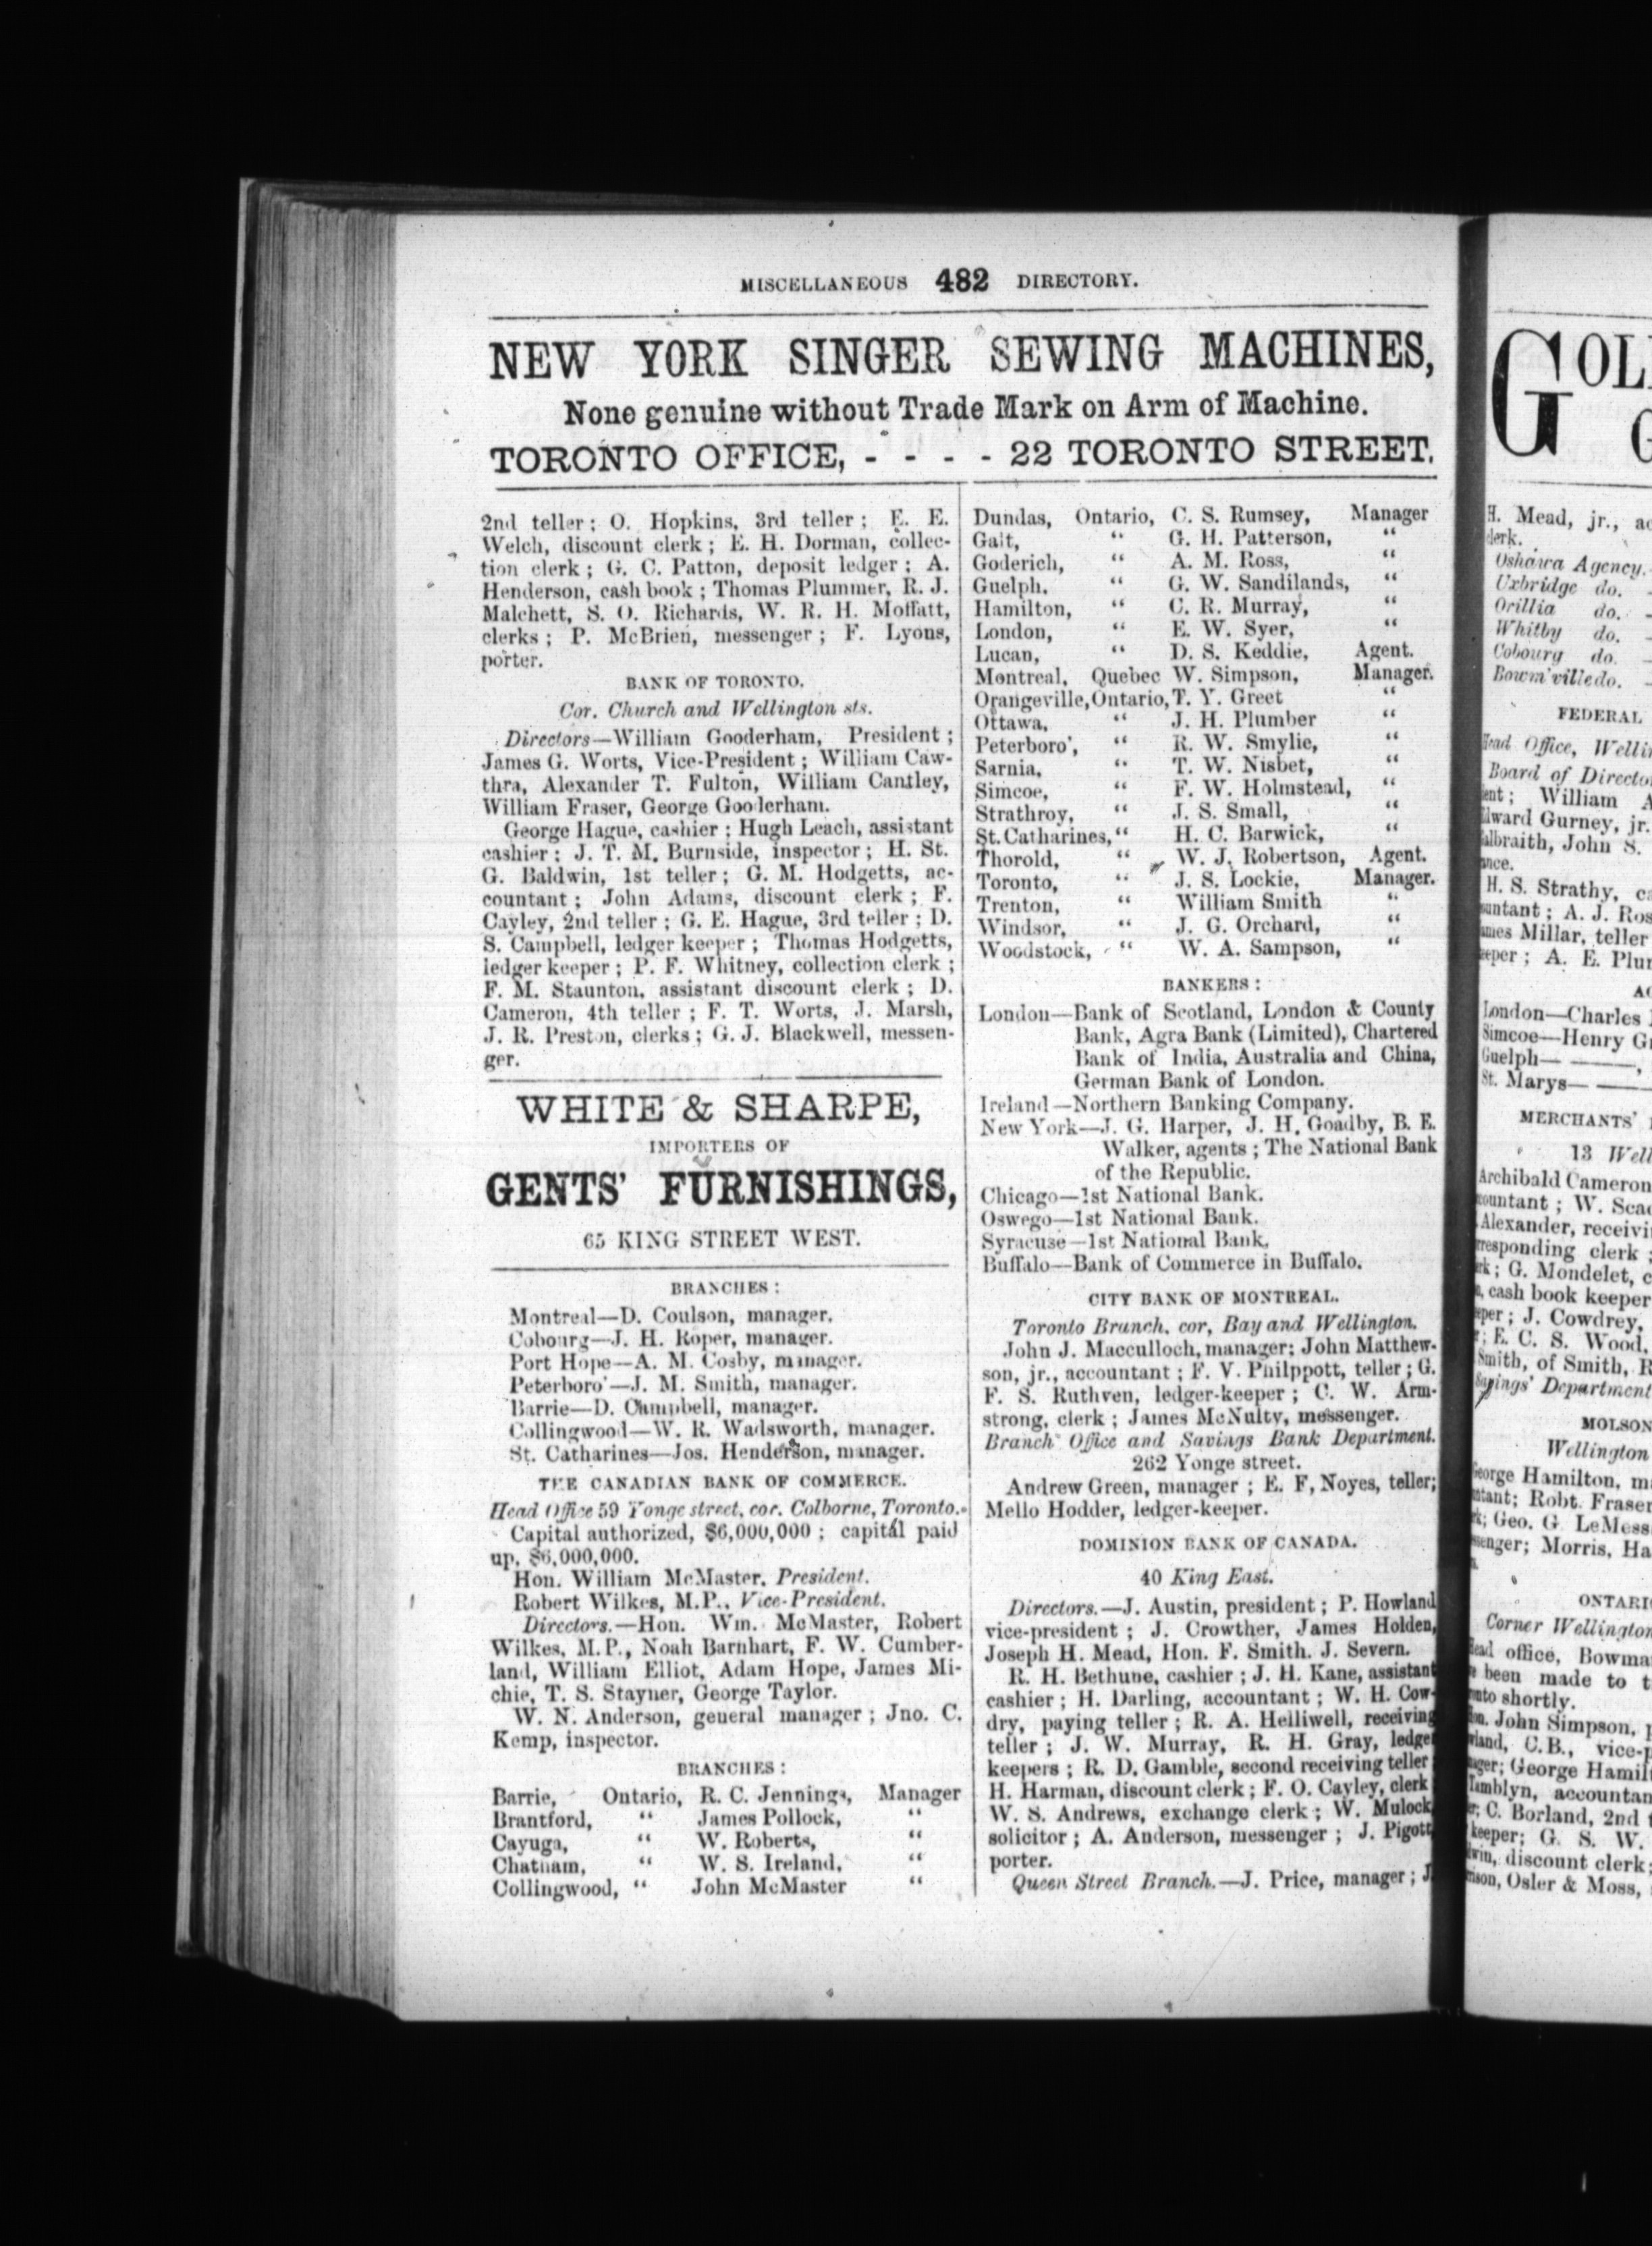 MISCELLANEOUS 482 DIRECTORY.
NEW YORK SINGER SEWING MACHINES,
None genuine without Trade Mark on Arm of Machine.
TORONTO OFFICE, - - - - 22 TORONTO STREET.
2nd teller; O. Hopkins, 3rd teller; E. E.
Welch, discount clerk; E. H. Dorman, collec-
tion clerk; G. C. Patton, deposit ledger; A.
Henderson, cash book; Thomas Plummer, R. J.
Malchett, S. O. Richards, W. R. H. Moffatt,
clerks; P. McBrien, messenger; F. Lyons,
porter.
BANK OF TORONTO.
Cor. Church and Wellington sts.
Directors—William Gooderham, President;
James G. Worts, Vice-President; William Caw-
thra, Alexander T. Fulton, William Cantley,
William Fraser, George Gooderham.
George Hague, cashier; Hugh Leach, assistant
cashier; J. T. M. Burnside, inspector; H. St.
G. Baldwin, 1st teller; G. M. Hodgetts, ac-
countant; John Adams, discount clerk; F.
Cayley, 2nd teller; G. E. Hague, 3rd teller; D.
S. Campbell, ledger keeper; Thomas Hodgetts,
ledger keeper; P. F. Whitney, collection clerk;
F. M. Staunton, assistant discount clerk; D.
Cameron, 4th teller; F. T. Worts, J. Marsh,
J. R. Preston, clerks; G. J. Blackwell, messen-
ger.
WHITE & SHARPE,
IMPORTERS OF
GENTS' FURNISHINGS,
65 KING STREET WEST.
BRANCHES:
Montreal—D. Coulson, manager.
Cobourg—J. H. Roper, manager.
Port Hope—A. M. Cosby, manager.
Peterboro'—J. M. Smith, manager.
Barrie—D. Campbell, manager.
Collingwood—W. R. Wadsworth, manager.
St. Catharines—Jos. Henderson, manager.
THE CANADIAN BANK OF COMMERCE.
Head Office 59 Yonge street, cor. Colborne, Toronto.
Capital authorized, $6,000,000; capital paid
up, $6,000,000.
Hon. William McMaster, President.
Robert Wilkes, M.P., Vice-President.
Directors.—Hon. Wm. McMaster, Robert
Wilkes, M.P., Noah Barnhart, F. W. Cumber-
land, William Elliot, Adam Hope, James Mi-
chie, T. S. Stayner, George Taylor.
W. N. Anderson, general manager; Jno. C.
Kemp, inspector.
BRANCHES:
Barrie, Ontario, R. C. Jennings, Manager
Brantford, “ James Pollock, “
Cayuga, “ W. Roberts, “
Chatham, “ W. S. Ireland, “
Collingwood, “ John McMaster “
Dundas, Ontario, C. S. Rumsey, Manager
Galt, “ G. H. Patterson, “
Goderich, “ A. M. Ross, “
Guelph, “ G. W. Sandilands, “
Hamilton, “ C. R. Murray, “
London, “ E. W. Syer, “
Lucan, “ D. S. Keddie, Agent.
Montreal, Quebec W. Simpson, Manager.
Orangeville, Ontario, T. Y. Greet “
Ottawa, “ J. H. Plumber “
Peterboro', “ R. W. Smylie, “
Sarnia, “ T. W. Nisbet, “
Simcoe, “ F. W. Holmstead, “
Strathroy, “ J. S. Small, “
St. Catharines, “ H. C. Barwick, “
Thorold, “ W. J. Robertson, Agent.
Toronto, “ J. S. Lockie, Manager.
Trenton, “ William Smith “
Windsor, “ J. G. Orchard, “
Woodstock, “ W. A. Sampson, “
BANKERS:
London—Bank of Scotland, London & County
Bank, Agra Bank (Limited), Chartered
Bank of India, Australia and China,
German Bank of London.
Ireland—Northern Banking Company.
New York—J. G. Harper, J. H. Goadby, B. E.
Walker, agents; The National Bank
of the Republic.
Chicago—1st National Bank.
Oswego—1st National Bank.
Syracuse—1st National Bank.
Buffalo—Bank of Commerce in Buffalo.
CITY BANK OF MONTREAL.
Toronto Branch, cor, Bay and Wellington.
John J. Macculloch, manager; John Matthew-
son, jr., accountant; F. V. Philppott, teller; G.
F. S. Ruthven, ledger-keeper; C. W. Arm-
strong, clerk; James McNulty, messenger.
Branch Office and Savings Bank Department.
262 Yonge street.
Andrew Green, manager; E. F, Noyes, teller;
Mello Hodder, ledger-keeper.
DOMINION BANK OF CANADA.
40 King East.
Directors.—J. Austin, president; P. Howland
vice-president; J. Crowther, James Holden,
Joseph H. Mead, Hon. F. Smith. J. Severn.
R. H. Bethune, cashier; J. H. Kane, assistant
cashier; H. Darling, accountant; W. H. Cow-
dry, paying teller; R. A. Helliwell, receiving
teller; J. W. Murray, R. H. Gray, ledge
keepers; R. D. Gamble, second receiving teller
H. Harman, discount clerk; F. O. Cayley, clerk
W. S. Andrews, exchange clerk; W. Mulock
solicitor; A. Anderson, messenger; J. Pigott
porter.
Queen Street Branch.—J. Price, manager; J.
GOL
G
H. Mead, jr., ac
clerk.
Oshawa Agency.
Uxbridge do.
Orillia do.
Whitby do.
Cobourg do.
Bowm'ville do.
FEDERAL
Head Office, Welli
Board of Directo
ent; William A
Edward Gurney, jr.
albraith, John S.
ance.
H. S. Strathy, c
untant; A. J. Ros
ames Millar, teller
eeper; A. E. Plu
AG
London—Charles
Simcoe—Henry G
Guelph—
St. Marys—
MERCHANTS'
13 Well
Archibald Cameron
countant; W. Sca
Alexander, receivi
rresponding clerk;
rk; G. Mondelet, c
cash book keeper
eper; J. Cowdrey,
E. C. S. Wood,
Smith, of Smith, R
Savings' Department
MOLSON
Wellington
George Hamilton, m
ntant; Robt. Fraser
rk; Geo. G LeMess
ssenger; Morris, Ha
ONTARI
Corner Wellington
Head office, Bowma
been made to t
onto shortly.
Hon. John Simpson, p
wland, C.B., vice-p
nager; George Hamil
Tamblyn, accountan
er; C. Borland, 2nd t
keeper; G. S. W.
dwin, discount clerk;
rrison, Osler & Moss,